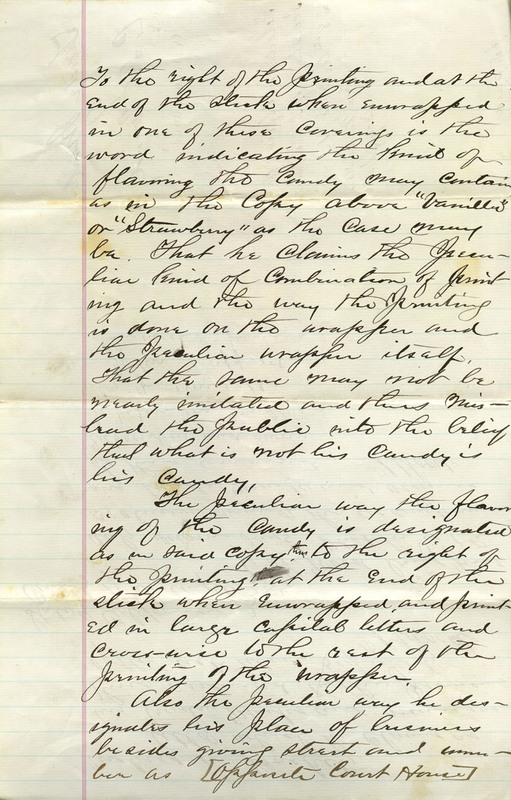 To the right of the printing and at the
End of the stick when enwrapped
in one of these coverings is the
word indicating the kind of
flavoring the candy may contain
as in the Copy above "Vanilla"
or "Strawberry" as the case may
be. That he claims the Pecu-
liar kind of Combination of print
ing and the way the printing
is done on the wrapper and
the Peculiar wrapper itself.
That the same may not be
nearly imitated and thus mis-
lead the public into the belief
that what is not his Candy is
his candy,
The Peculiar way the flavor
ing of the Candy is designated
as in said copy thus to the right of
the printing at the End of the
stick when Enwrapped and print
ed in large capital letters and
cross-wise to the rest of the
printing of the wrapper.
Also the peculiar way he des-
ignates his place of business
besides giving street and num-
ber as [Opposite Court House]